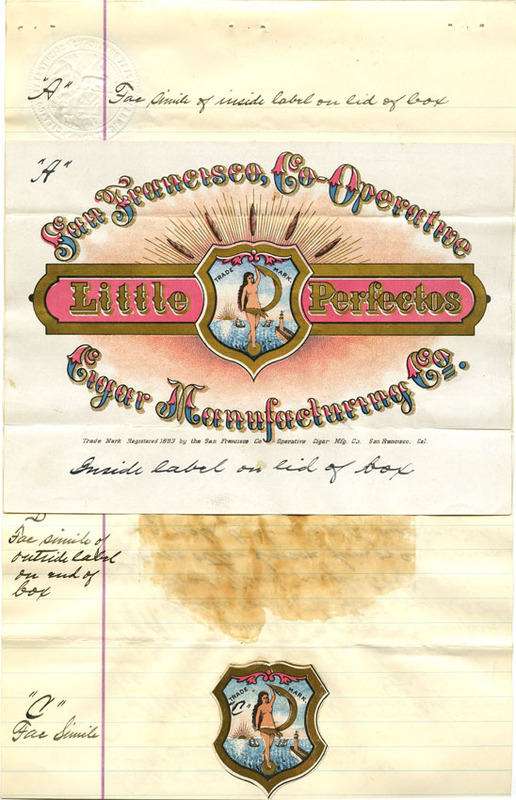 "A" Fac simile of inside label on lid of box
"A"
San Francisco, Co-Operative
TRADE MARK
Little Perfectos
Cigar Manufacturing Co.
Trade Mark Registered 1893 by the San Francisco Co-Operative Cigar Mfg. Co. San Francisco, Cal.
Inside label on lid of box
Fac simile of
outside label
on end of
box
TRADE MARK
"C"
"C"
Fac Simile